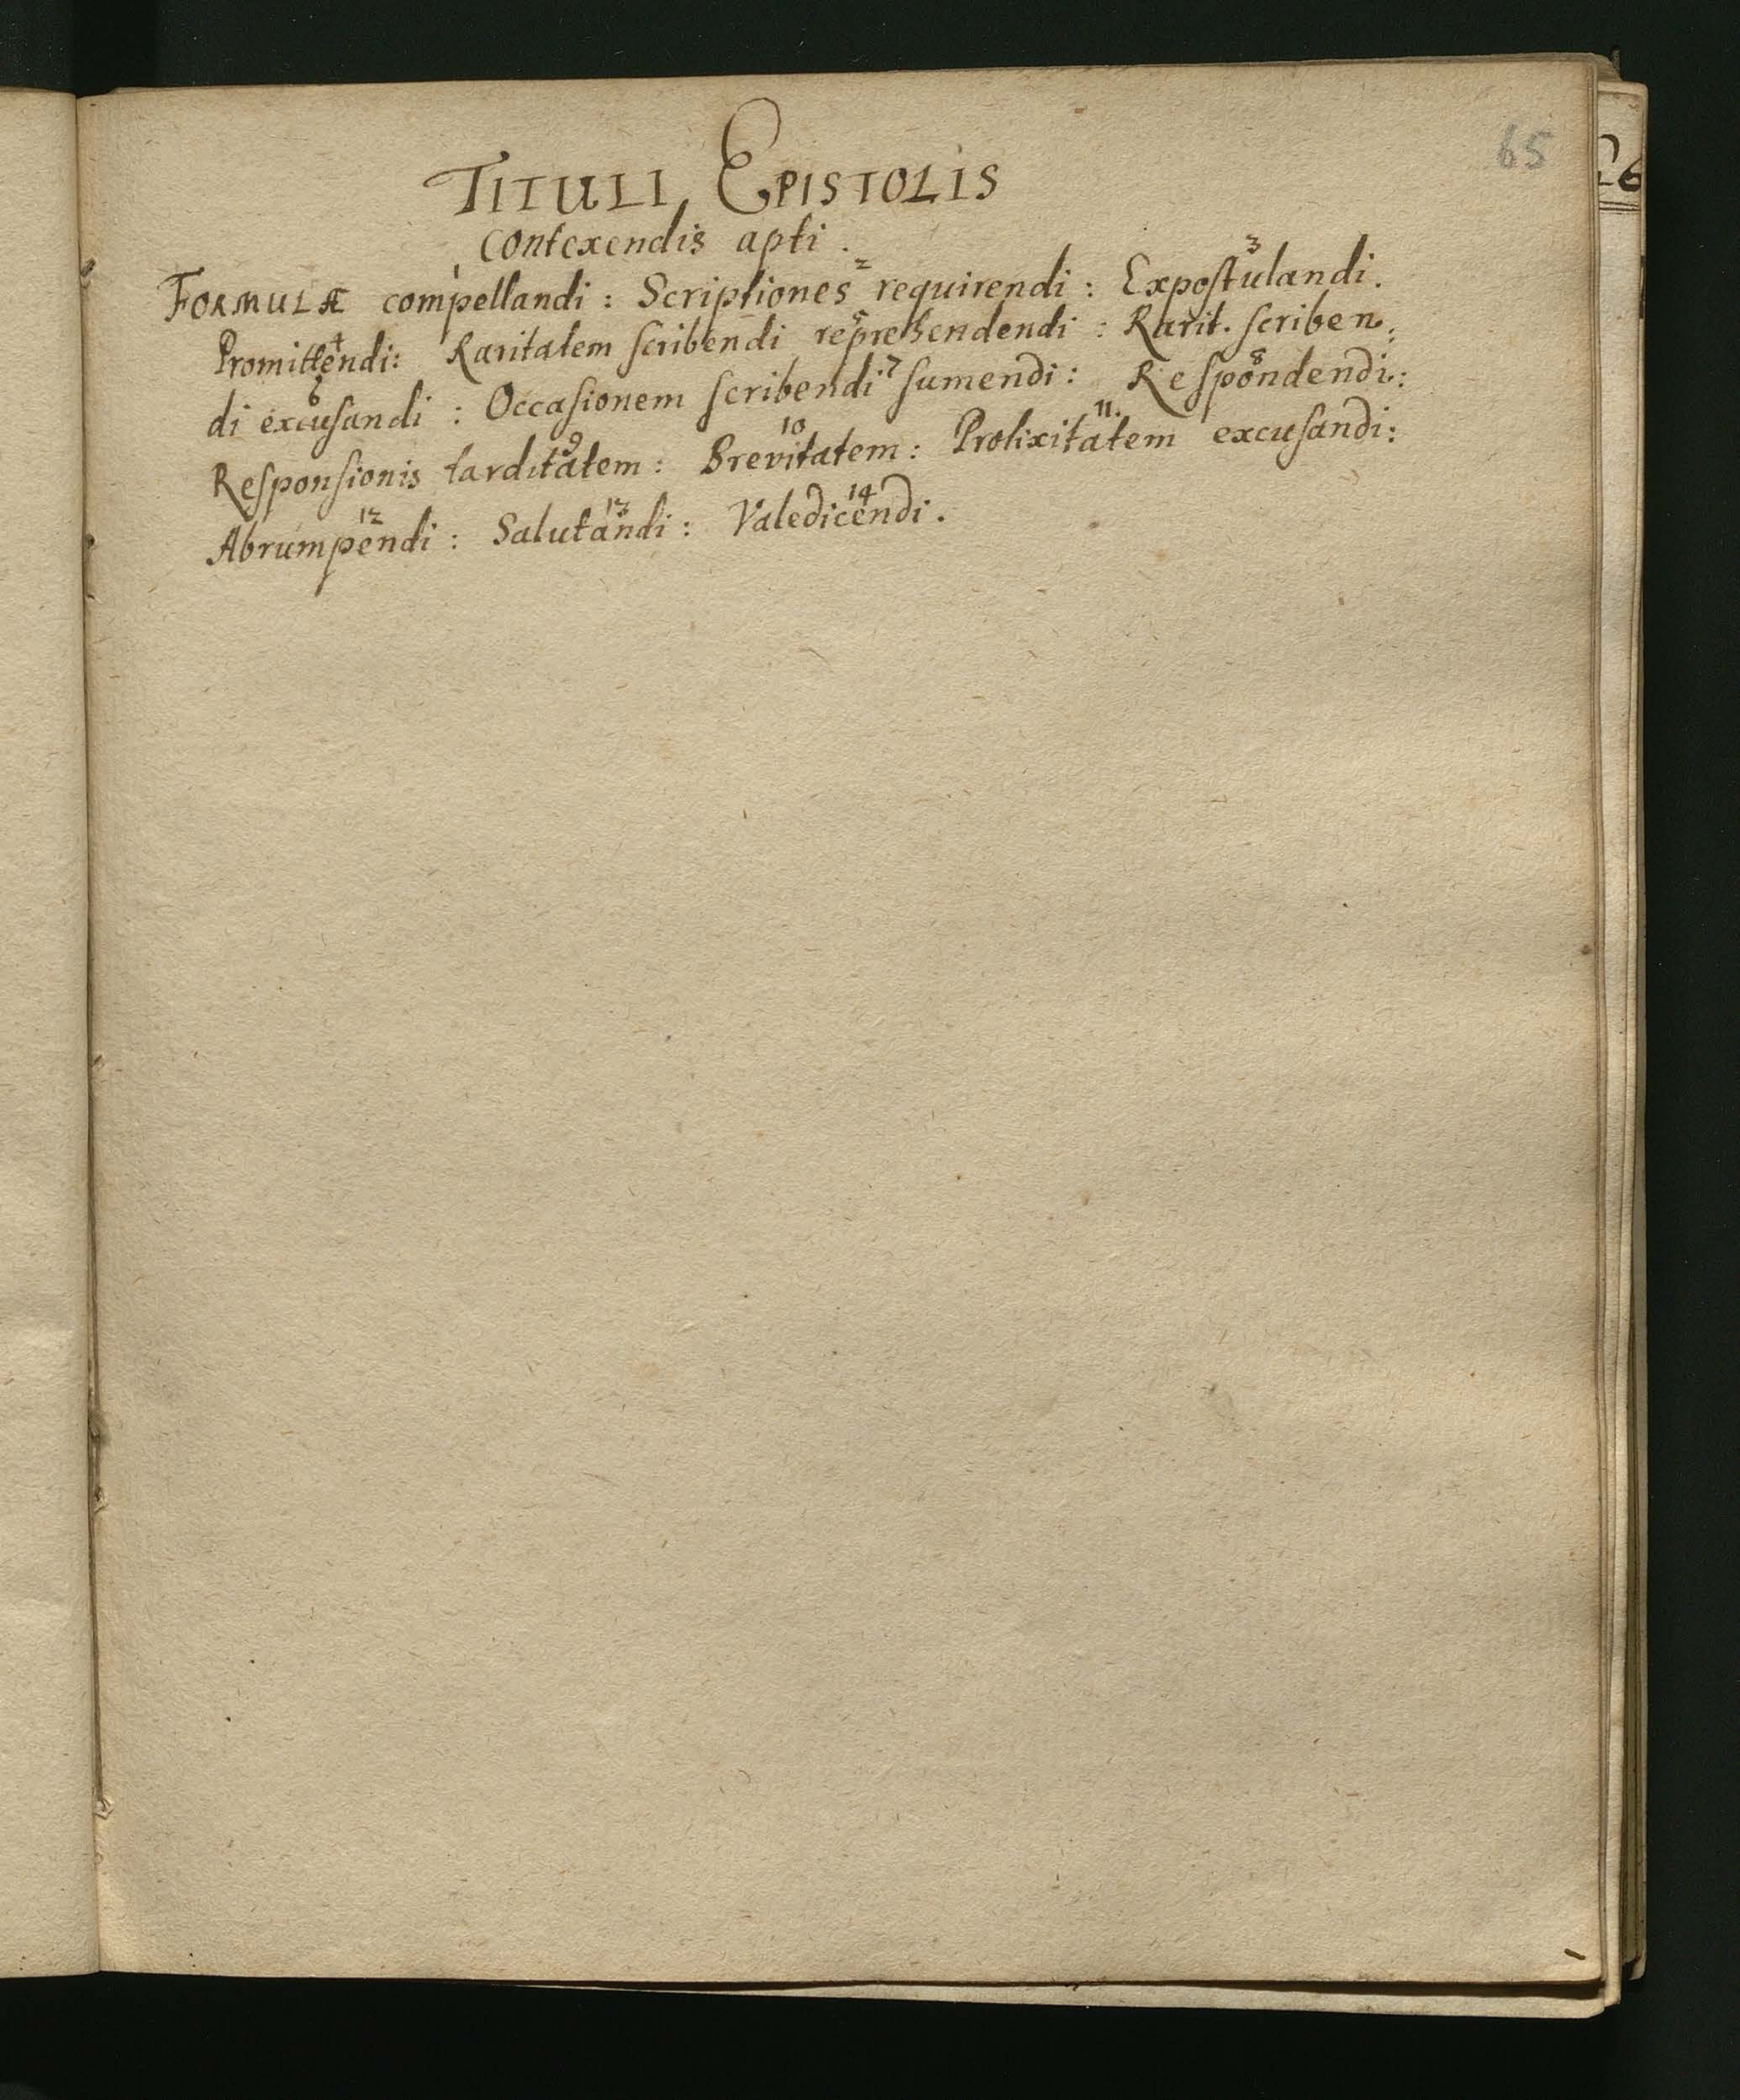 65
26
TITULI EPISTOLIS
contexendis apti.
1 2 3
FORMULÆ compellandi: Scriptiones requirendi: Expoſtulandi.
4 5
Promittendi: Raritatem ſcribendi reprehendendi: Rarit. ſcriben:
6 7 8
di excuſandi: Occaſionem ſcribendi ſumendi: Reſpondendi:
9 10 11.
Reſponſionis tarditatem: Brevitatem: Prolixitatem excuſandi:
12 13 14
Abrumpendi: Salutandi: Valedicendi.